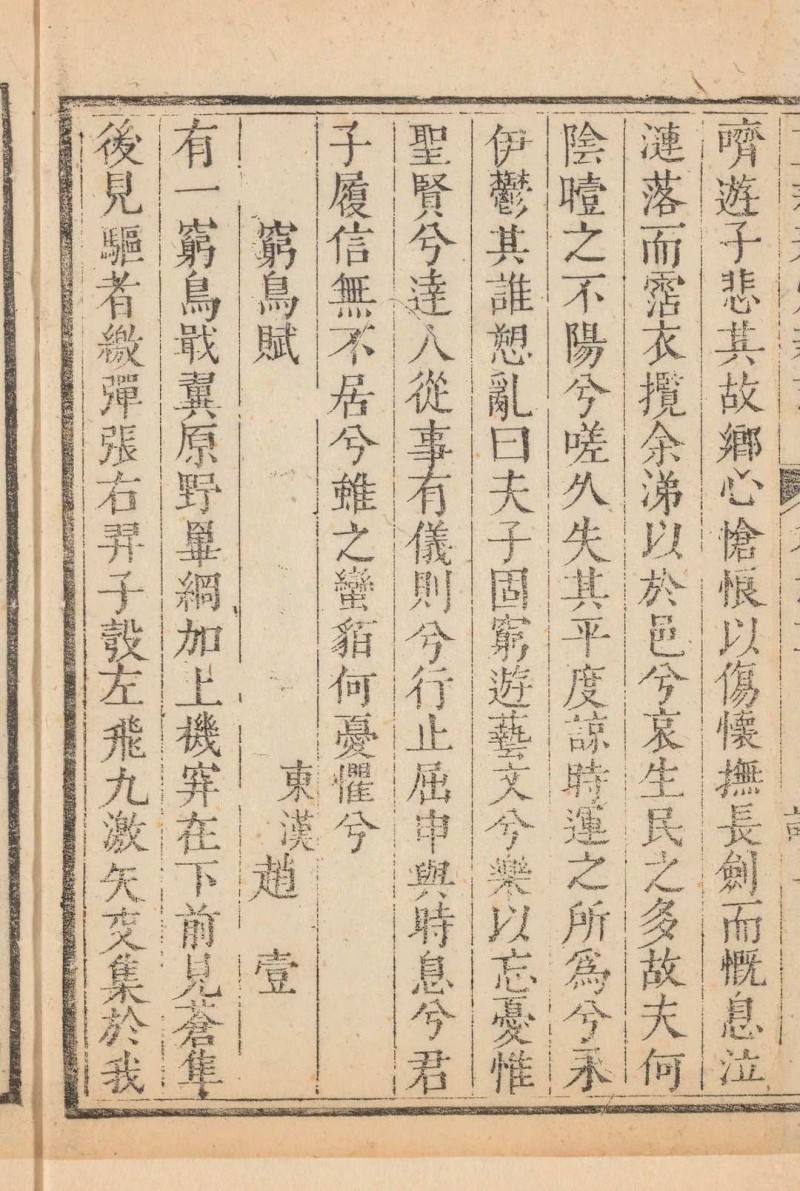 嚌遊子悲其故鄉心愴悢以傷懷撫長劍而慨息泣
漣落而霑衣攬余涕以於邑兮哀生民之多故夫何
陰曀之不陽兮嗟久失其平度諒時運之所爲兮永
伊鬱其誰愬亂曰夫子固窮遊藝文兮樂以忘憂惟
聖賢兮達人從事有儀則兮行止屈申與時息兮君
子履信無不居兮雖之蠻貊何憂懼兮
窮鳥賦
東漢趙壹
有一窮鳥戢翼原野罼網加上機穽在下前見蒼隼
後見驅者繳彈張右羿子彀左飛丸激矢交集於我